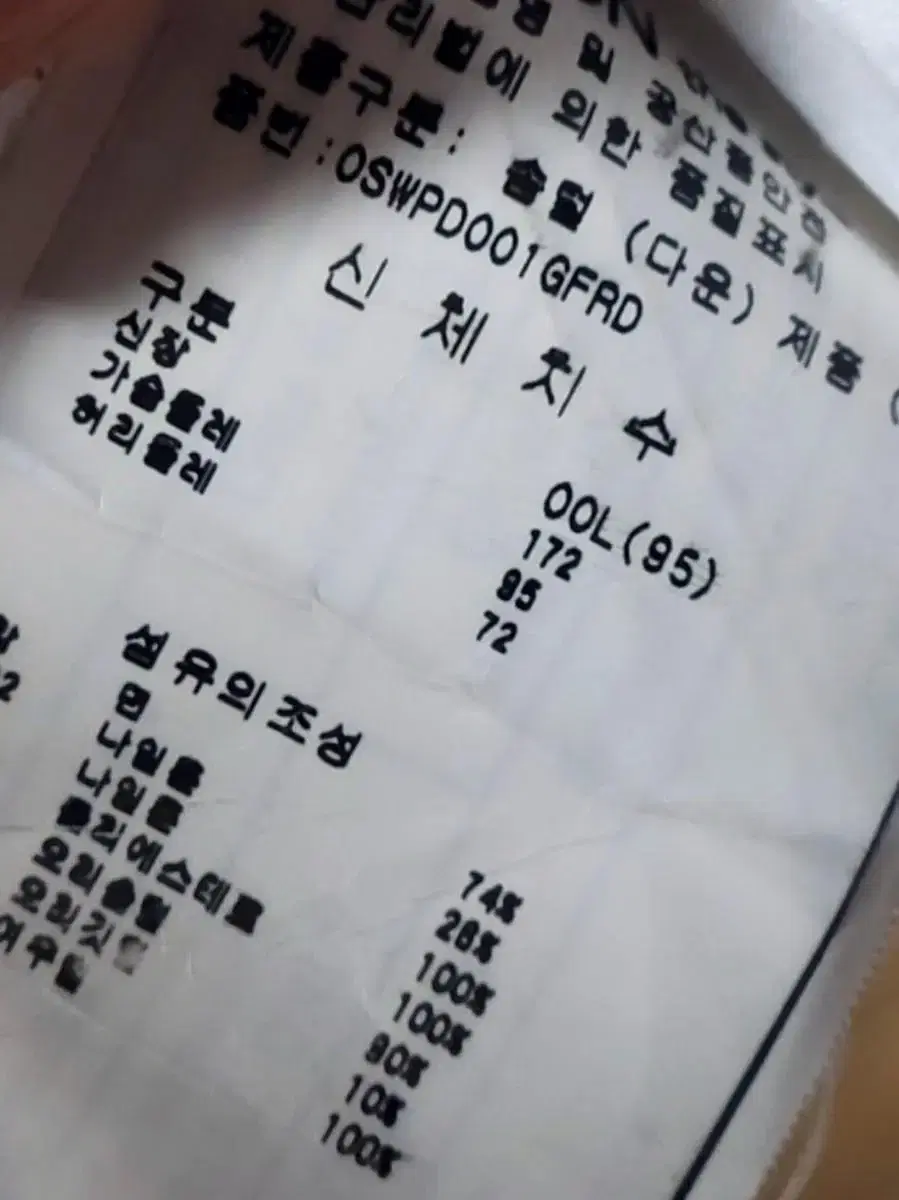 및 공산품안전
관리법에 의한 품질표시
제품구분: 솜털 (다운) 제품 (
품번:OSWPD001GFRD
신 체 치 수
구분 00L(95)
신장 172
가슴둘레 95
허리둘레 72
섬유의조성
면 74%
나일론 26%
나일론 100%
폴리에스테르 100%
오리솜털 90%
오리깃털 10%
여우털 100%